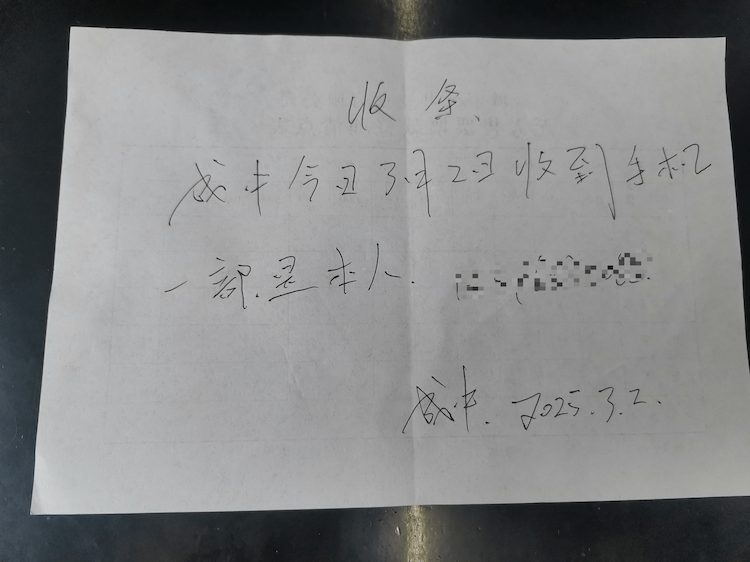 收条
成中今日3月2日收到手机
一部.是本人.
成中. 2025.3.2.